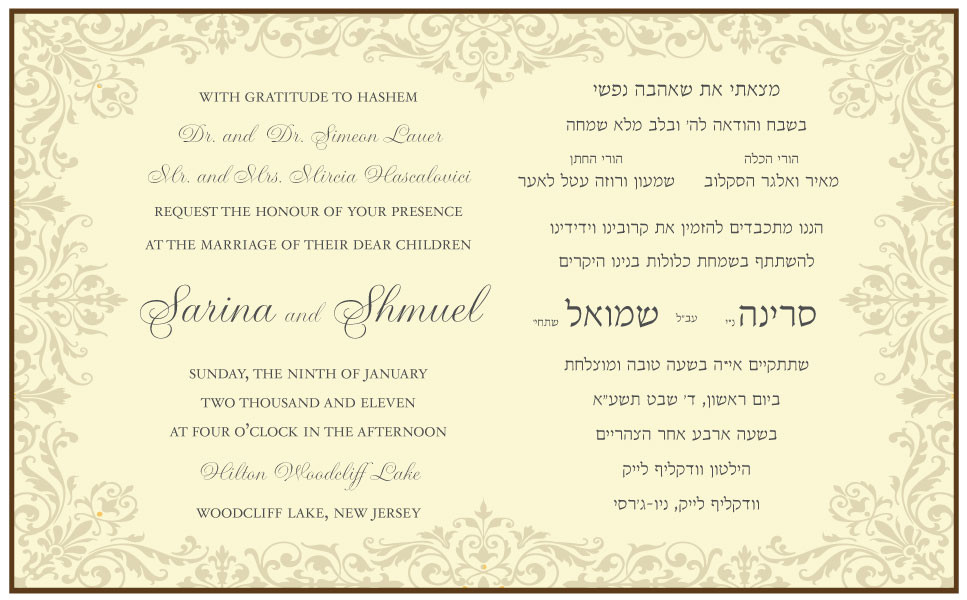 WITH GRATITUDE TO HASHEM
Dr. and Dr. Simeon Lauer
Mr. and Mrs. Mircia Hascalovici
REQUEST THE HONOUR OF YOUR PRESENCE
AT THE MARRIAGE OF THEIR DEAR CHILDREN
Sarina and Shmuel
SUNDAY, THE NINTH OF JANUARY
TWO THOUSAND AND ELEVEN
AT FOUR O'CLOCK IN THE AFTERNOON
Hilton Woodcliff Lake
WOODCLIFF LAKE, NEW JERSEY
מצאתי את שאהבה נפשי
בשבח והודאה לה' ובלב מלא שמחה
הורי הכלה הורי החתן
מאיר ואלגר הסקלוב שמעון ורוזה עטל לאער
הננו מתכבדים להזמין את קרובינו וידידינו
להשתתף בשמחת כלולות בנינו היקרים
סרינה נ"י עב"ל שמואל שתחי'
שתתקיים אי"ה בשעה טובה ומוצלחת
ביום ראשון, ד' שבט תשע"א
בשעה ארבע אחר הצהריים
הילטון וודקליף לייק
וודקליף לייק, ניו-ג'רסי